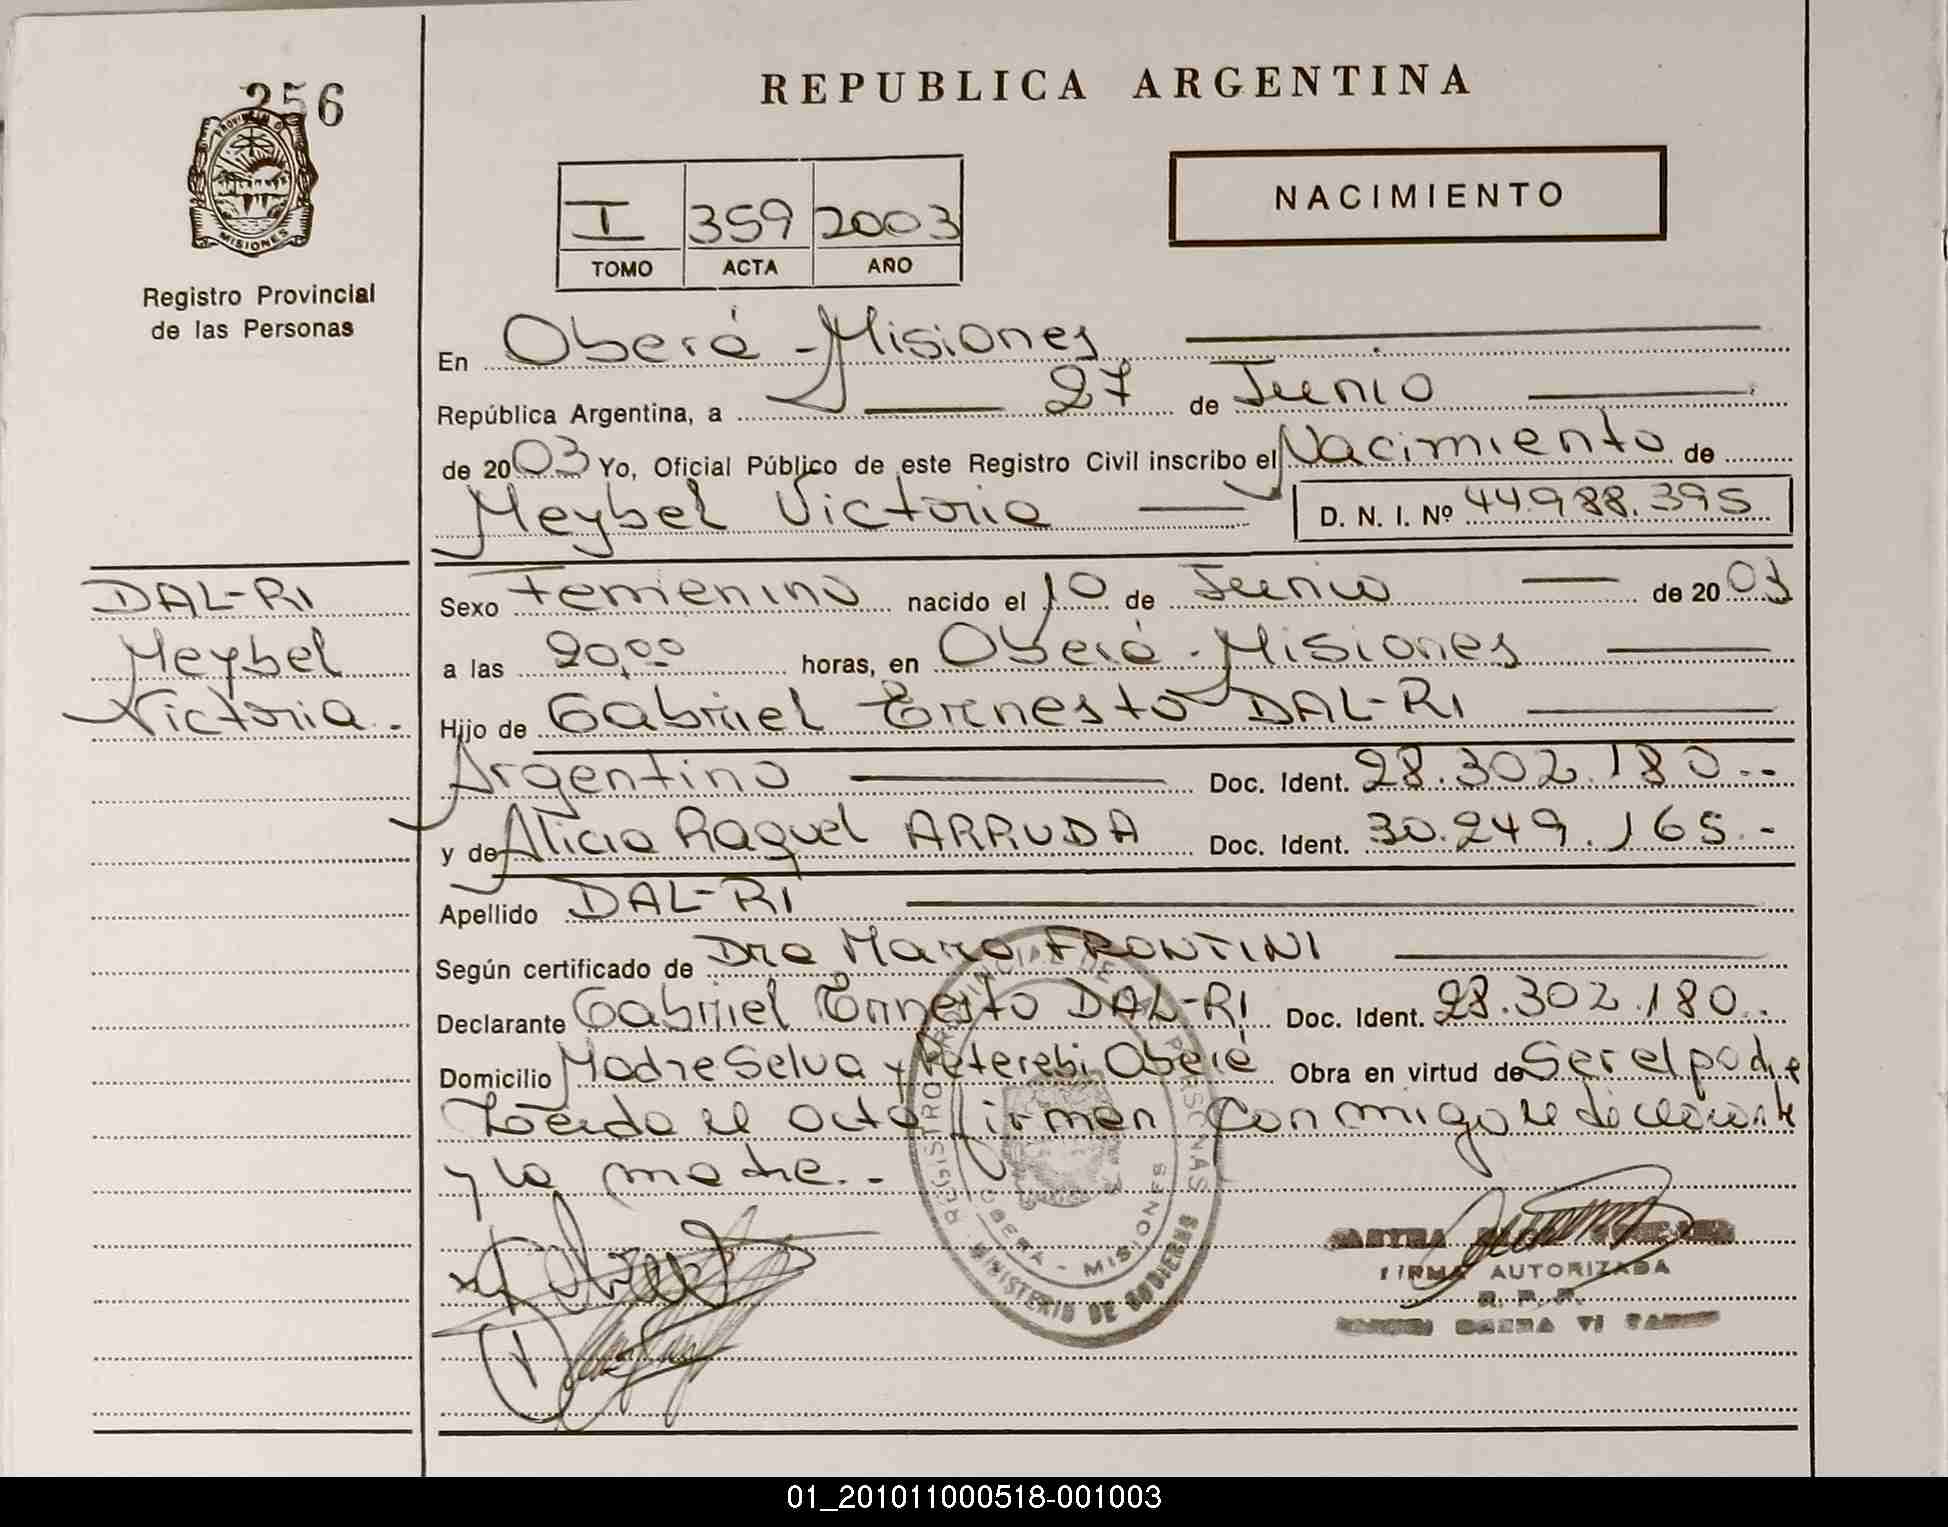 REPUBLICA ARGENTINA
256
PROVINCIA DE
MISIONES
Registro Provincial
de las Personas
I 359 2003
TOMO ACTA AÑO
NACIMIENTO
En Oberá - Misiones
República Argentina, a 27 de Junio
de 2003 Yo, Oficial Público de este Registro Civil inscribo el Nacimiento de
Meybel Victoria D. N. I. Nº 44.988.395
DAL-RI
Meybel
Victoria.-
Sexo Femenino nacido el 10 de Junio de 2003
a las 20,00 horas, en Oberá - Misiones
Hijo de Gabriel Ernesto DAL-RI
Argentino Doc. Ident. 28.302.180.-
y de Alicia Raquel ARRUDA Doc. Ident. 30.249.165.-
Apellido DAL-RI
Según certificado de Dra FRONTINI
Declarante Gabriel Ernesto DAL-RI Doc. Ident. 28.302.180.-
Domicilio Madreselva y Peterebi Oberá Obra en virtud de Ser el padre
Leida el acta firman conmigo el declarante
y la madre.-
REGISTRO PROVINCIAL DE PERSONAS
OBERA - MISIONES
MINISTERIO DE GOBIERNO
FIRMA AUTORIZADA
R. P. P.
01_201011000518-001003